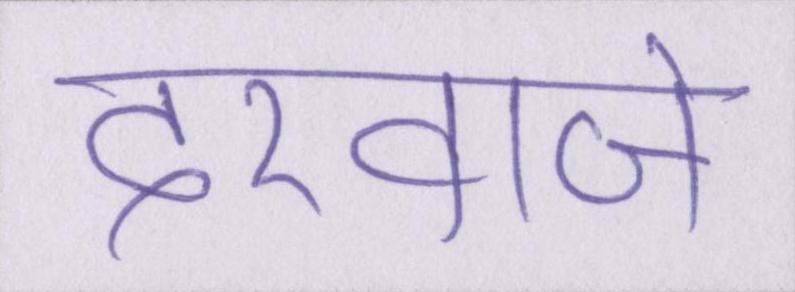 दरवाजे